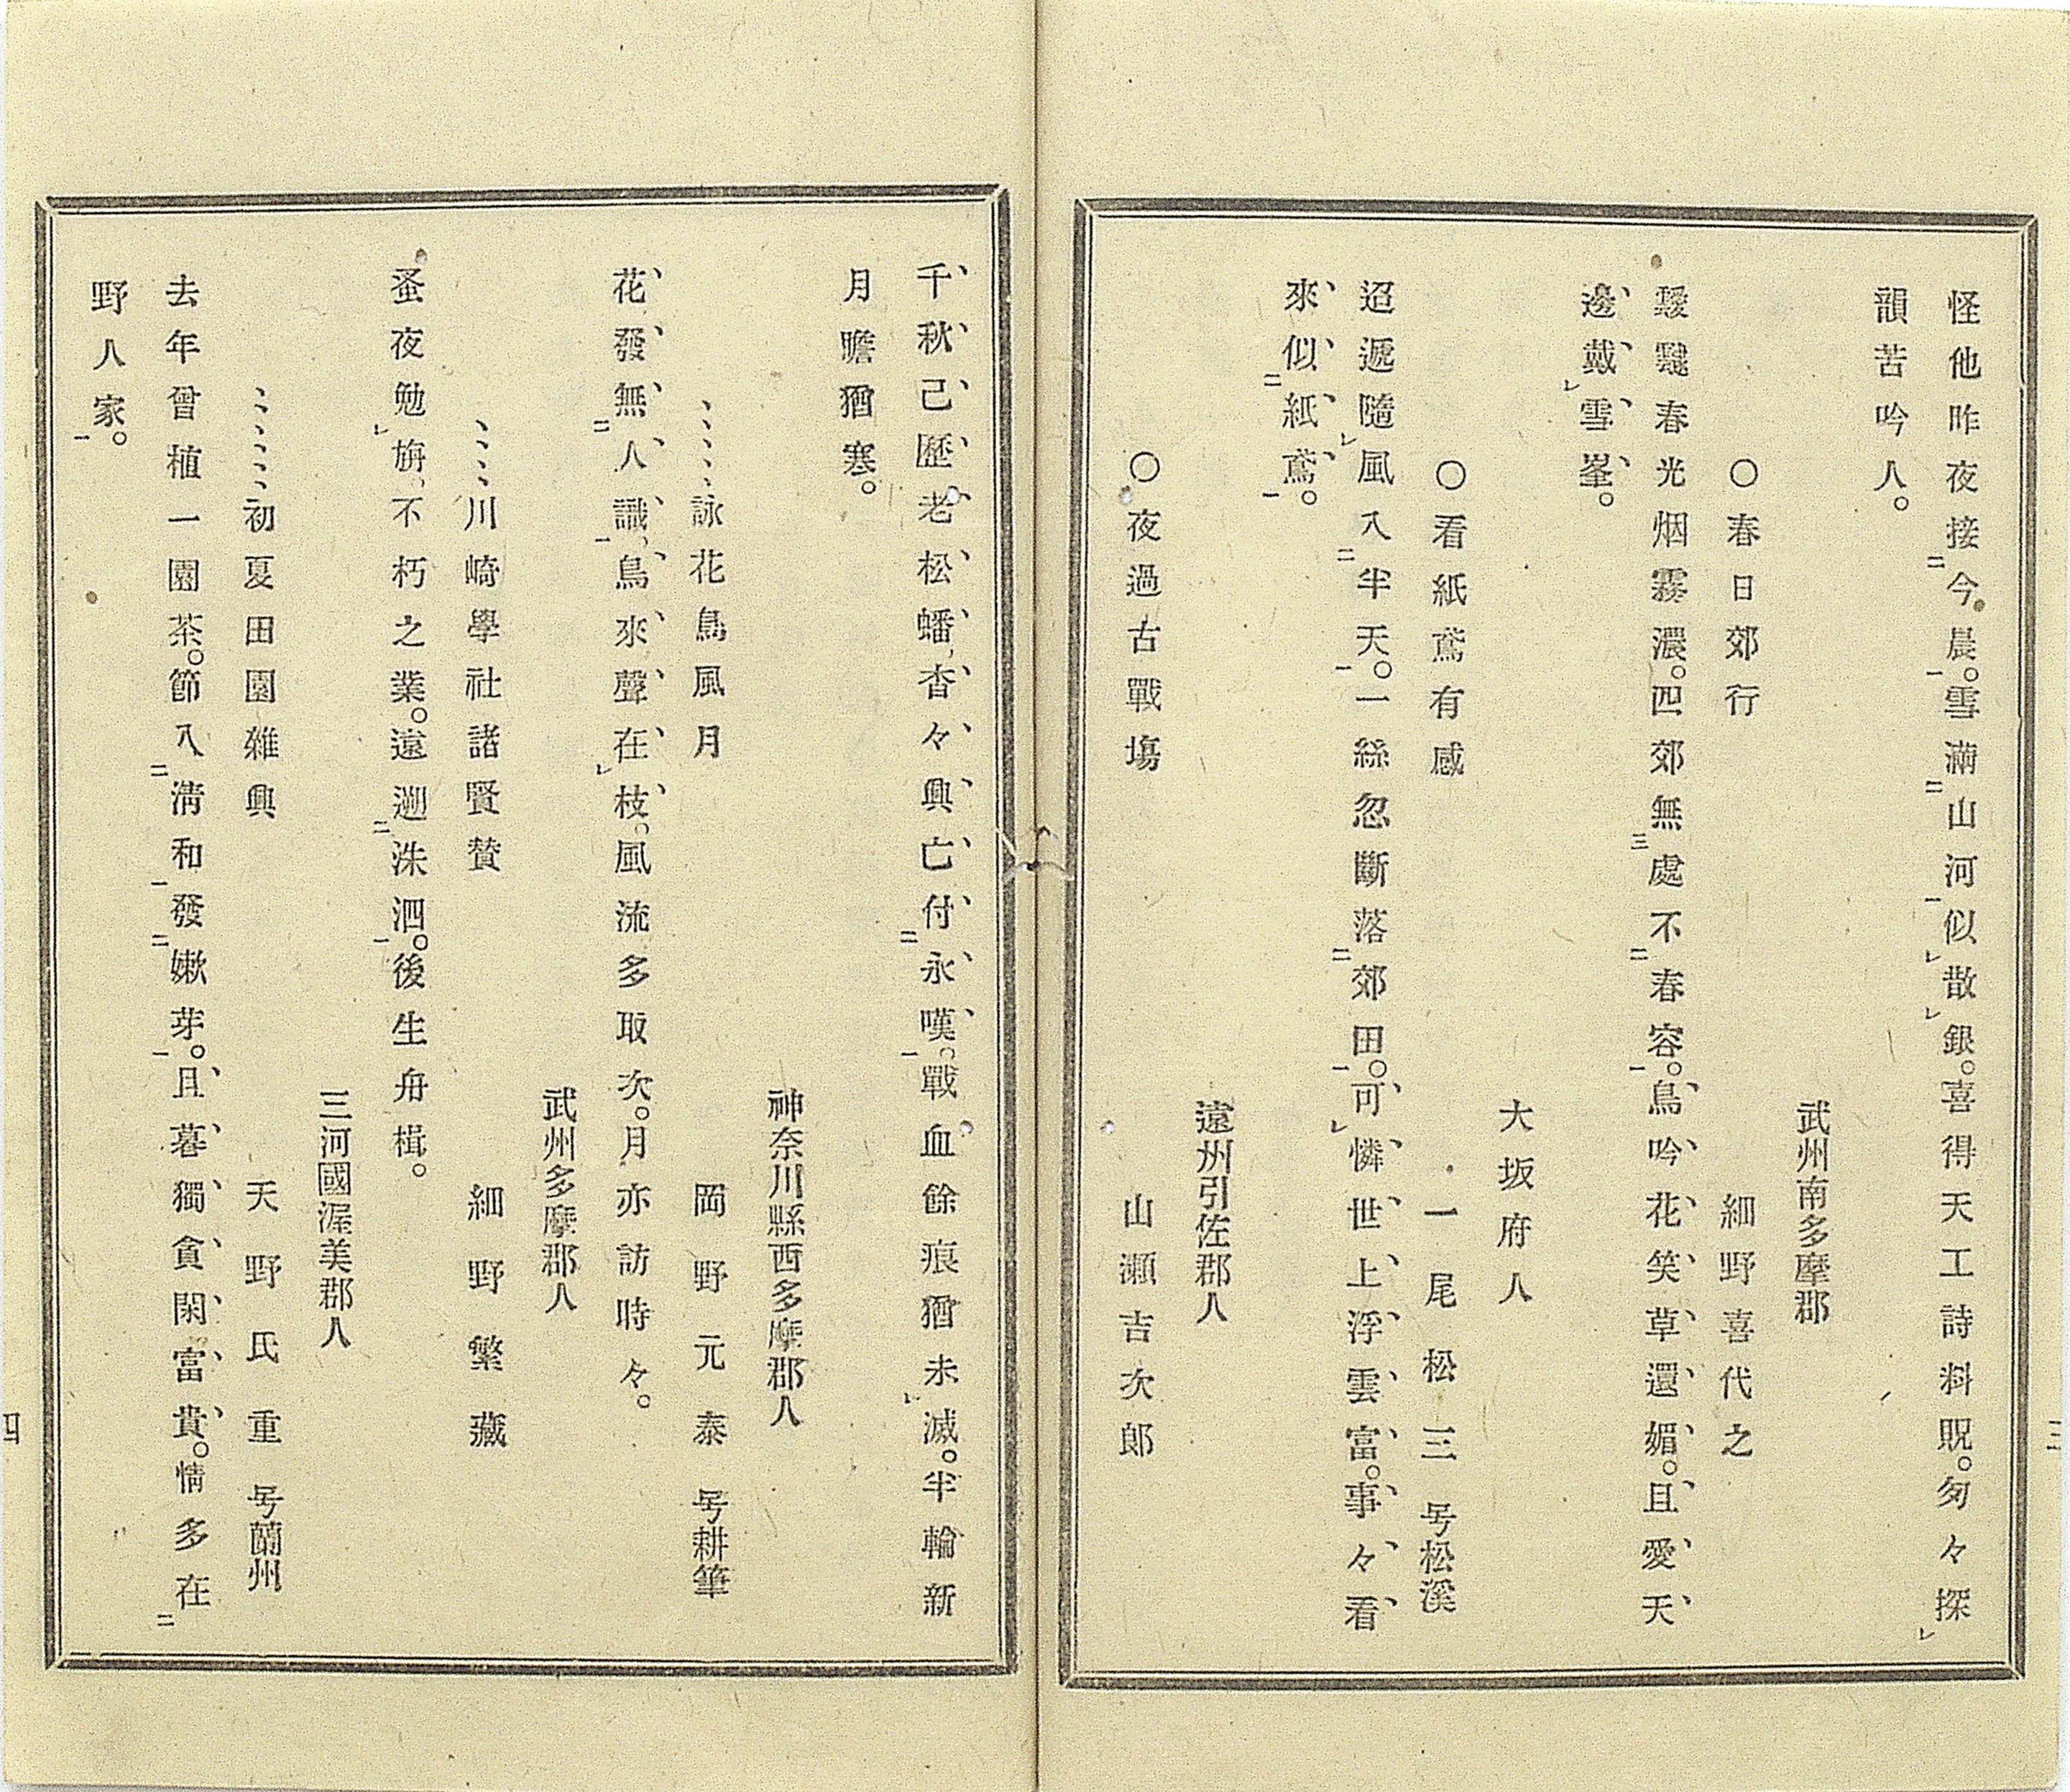 怪他昨夜接二今晨一。雪滿二山河一似レ散レ銀。喜得天工詩料貺。匆々探レ
韻苦吟人。
武州南多摩郡
〇春日郊行　細野喜代之
靉靆春光烟霧濃。四郊無三處不二春容一。鳥吟花笑草還媚。且愛天
邊戴レ雪峯。
大坂府人
〇看紙鳶有感　一尾松三　号松溪
迢遞隨レ風入二半天一。一絲忽斷落二郊田一。可レ憐世上浮雲富。事々看
來似二紙鳶一。
遠州引佐郡人
〇夜過古戰塲　山瀬吉次郎
三
千秋已歷老松蟠、杳々興亡付二永嘆一。戰血餘痕猶未レ滅。半輪新
月瞻猶寒。
神奈川縣西多摩郡人
、、、、、詠花鳥風月　岡野元泰　号耕筆
花發無二人識一、鳥來聲在レ枝。風流多取次。月亦訪時々。
武州多摩郡人
、、、、川崎學社諸賢賛　細野繁藏
蚤夜勉レ旃、不朽之業。遠遡二洙泗一。後生舟楫。
三河國渥美郡人
、、、、、初夏田園雜興　天野氏重　号蘭州
去年曾植一園茶。節入二淸和一發二嫩芽一。且暮獨貪閑富貴。情多在二
野人家一。
四